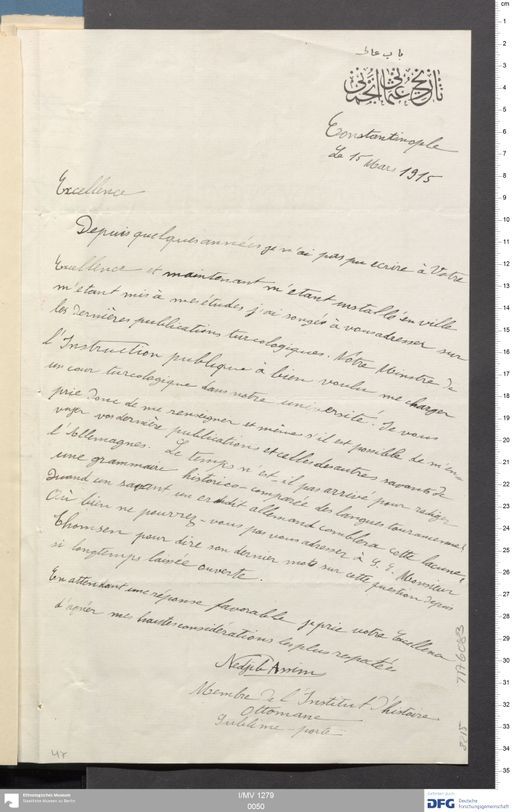 باب عالی
تاریخ عثمانی انجمنی
Constantinople
Le 15 Mars 1915
Excellence
Depuis quelques années je n'ai pas pu ecrire à Votre
Excellence et maintenant m'etant installé en ville
m'etant mis à mes études j'ai songés à vous adresser sur
les dernières publications turcologiques. Notre Ministre de
l'Instruction publique à bien voulu me charger
un cour turcologique dans notre université. Je vous
prie donc de me renseigner et même s'il est possible de m'en-
voyer vos dernière publications et celles des autres savants de
l'Allemagnes. Le temps n'est-il pas arrivé pour rediger
une grammaire historico-comparée des langues touraniennes?
Quand un savant un erudit allemand comblera cette lacune?
Où bien ne pourrez-vous pas vous adresser à S. E. Monsieur
Thomsen pour dire son dernier mot sur cette question depuis
si longtemps laisée ouverte.
En attendant une réponse favorable je prie votre Excellence
d'agréer mes hautes considérations les plus respectée
Nedjib Assim
Membre de l'Institut d'histoire
Ottomane
Sublime-porte
47
I/MV 1279
0050
Ethnologisches Museum
Staatliche Museen zu Berlin
DFG
Deutsche
Forschungsgemeinschaft